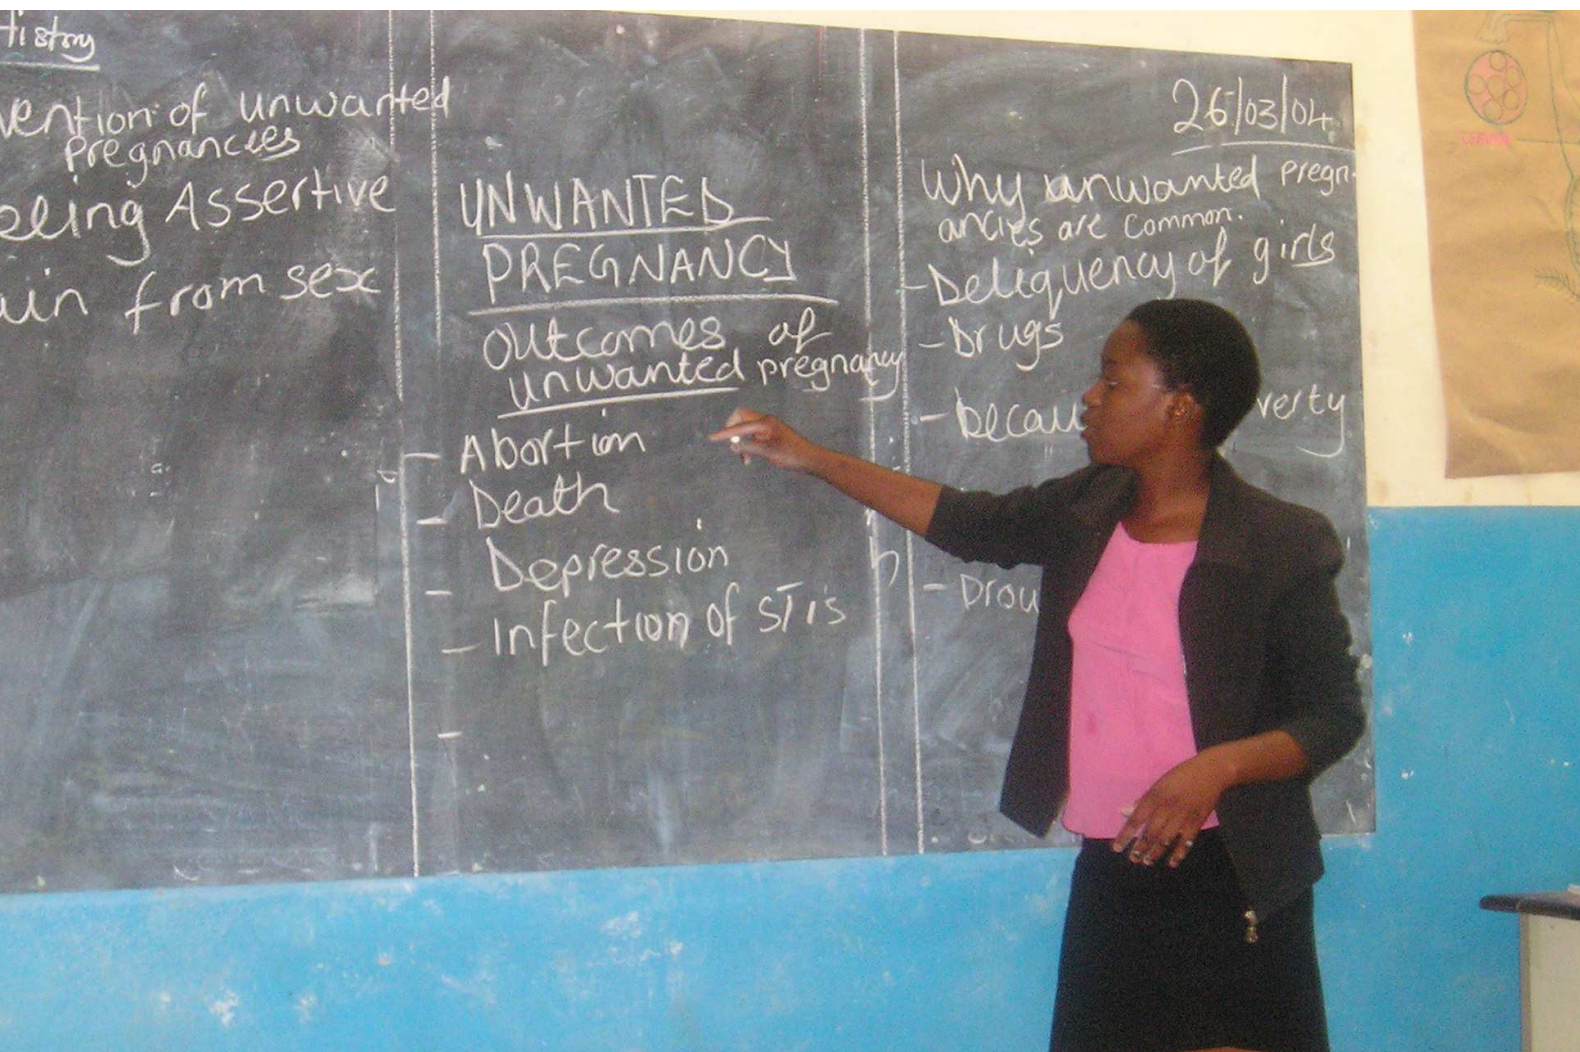 History
vention of unwanted
Pregnancies
eeling Assertive
ain from sex
UNWANTED
PREGNANCY
Outcomes of
unwanted pregnancy
- Abortion
- Death
- Depression
- Infection of STIs
-
26/03/04
Why unwanted pregn-
ancies are common.
- Deliquency of girls
- Drugs
- becau verty
- Drou